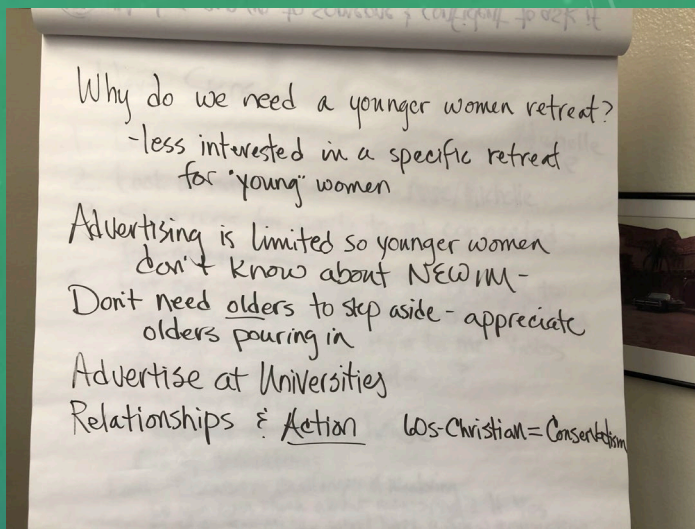 Why do we need a younger women retreat?
-less interested in a specific retreat
for "young" women
Advertising is limited so younger women
don't know about NEWIM-
Don't need olders to step aside - appreciate
olders pouring in
Advertise at Universities
Relationships & Action 60s-Christian=Conservatism